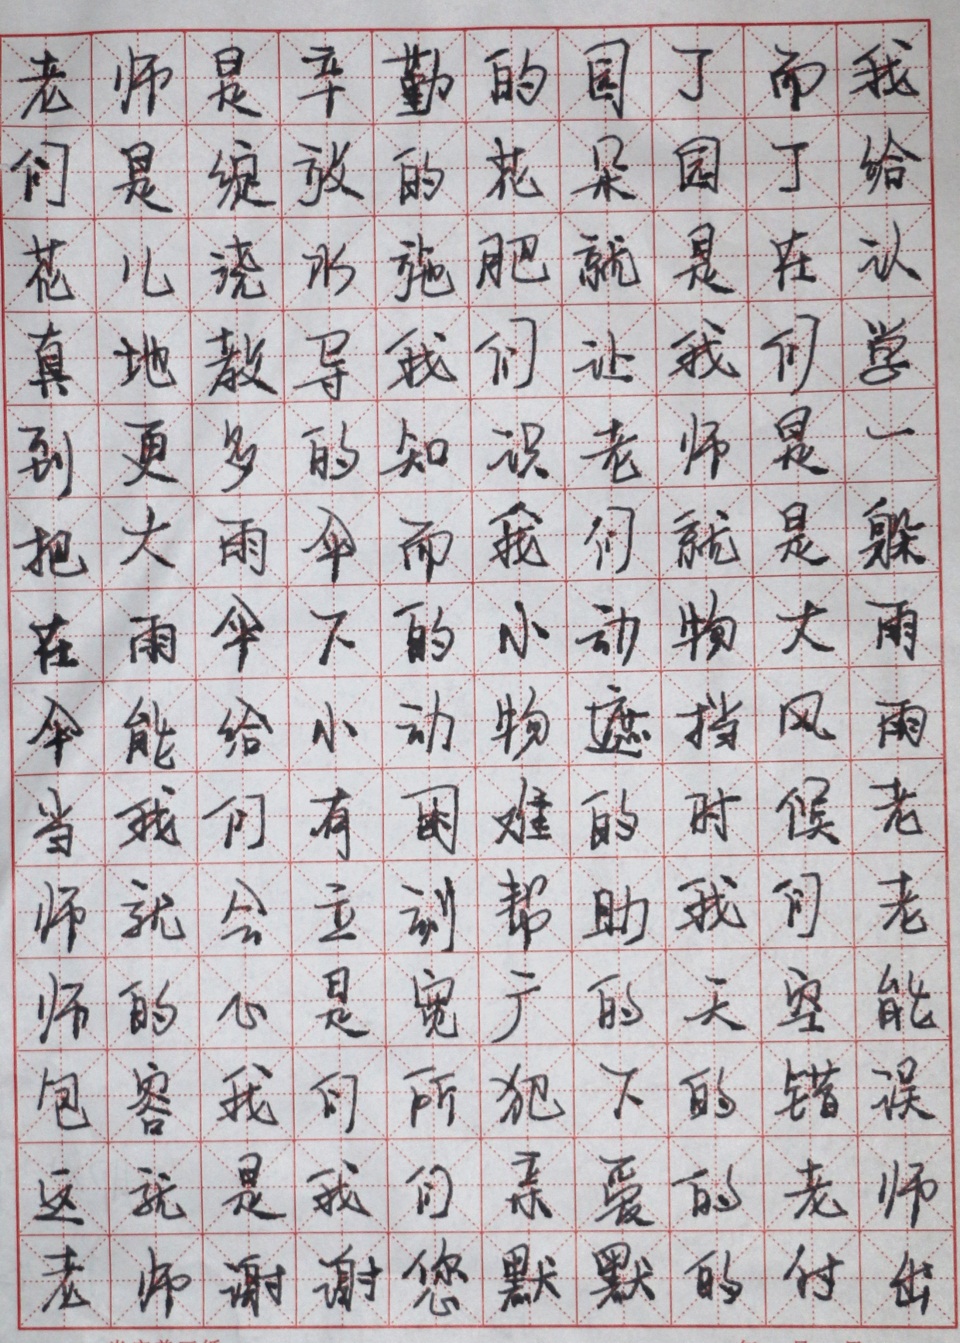 老师是辛勤的园丁而我
们是绽放的花朵园丁给
花儿浇水施肥就是在认
真地教导我们让我们学
到更多的知识老师是一
把大雨伞而我们就是躲
在雨伞下的小动物大雨
伞能给小动物遮挡风雨
当我们有困难的时候老
师就会立刻帮助我们老
师的心是宽广的天空能
包容我们所犯下的错误
这就是我们亲爱的老师
老师谢谢您默默的付出